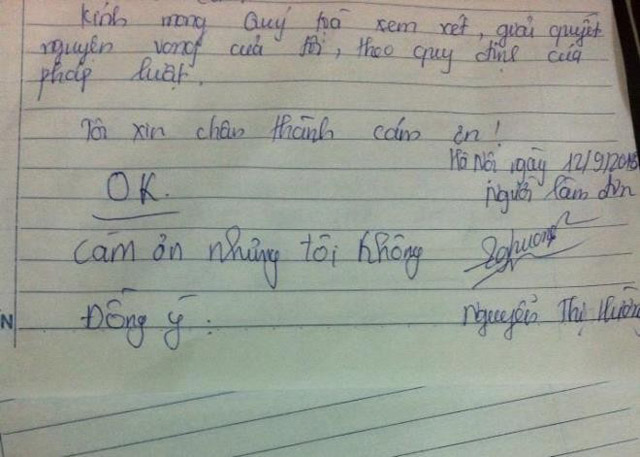 Kính mong Quý toà xem xét, giải quyết
nguyện vọng của tôi, theo quy định của
pháp luật.
Tôi xin chân thành cám ơn!
Hà Nội ngày 12/9/2013
OK.
Người làm đơn
Cảm ơn nhưng tôi không
Đồng ý.
Nguyễn Thị Hường
N